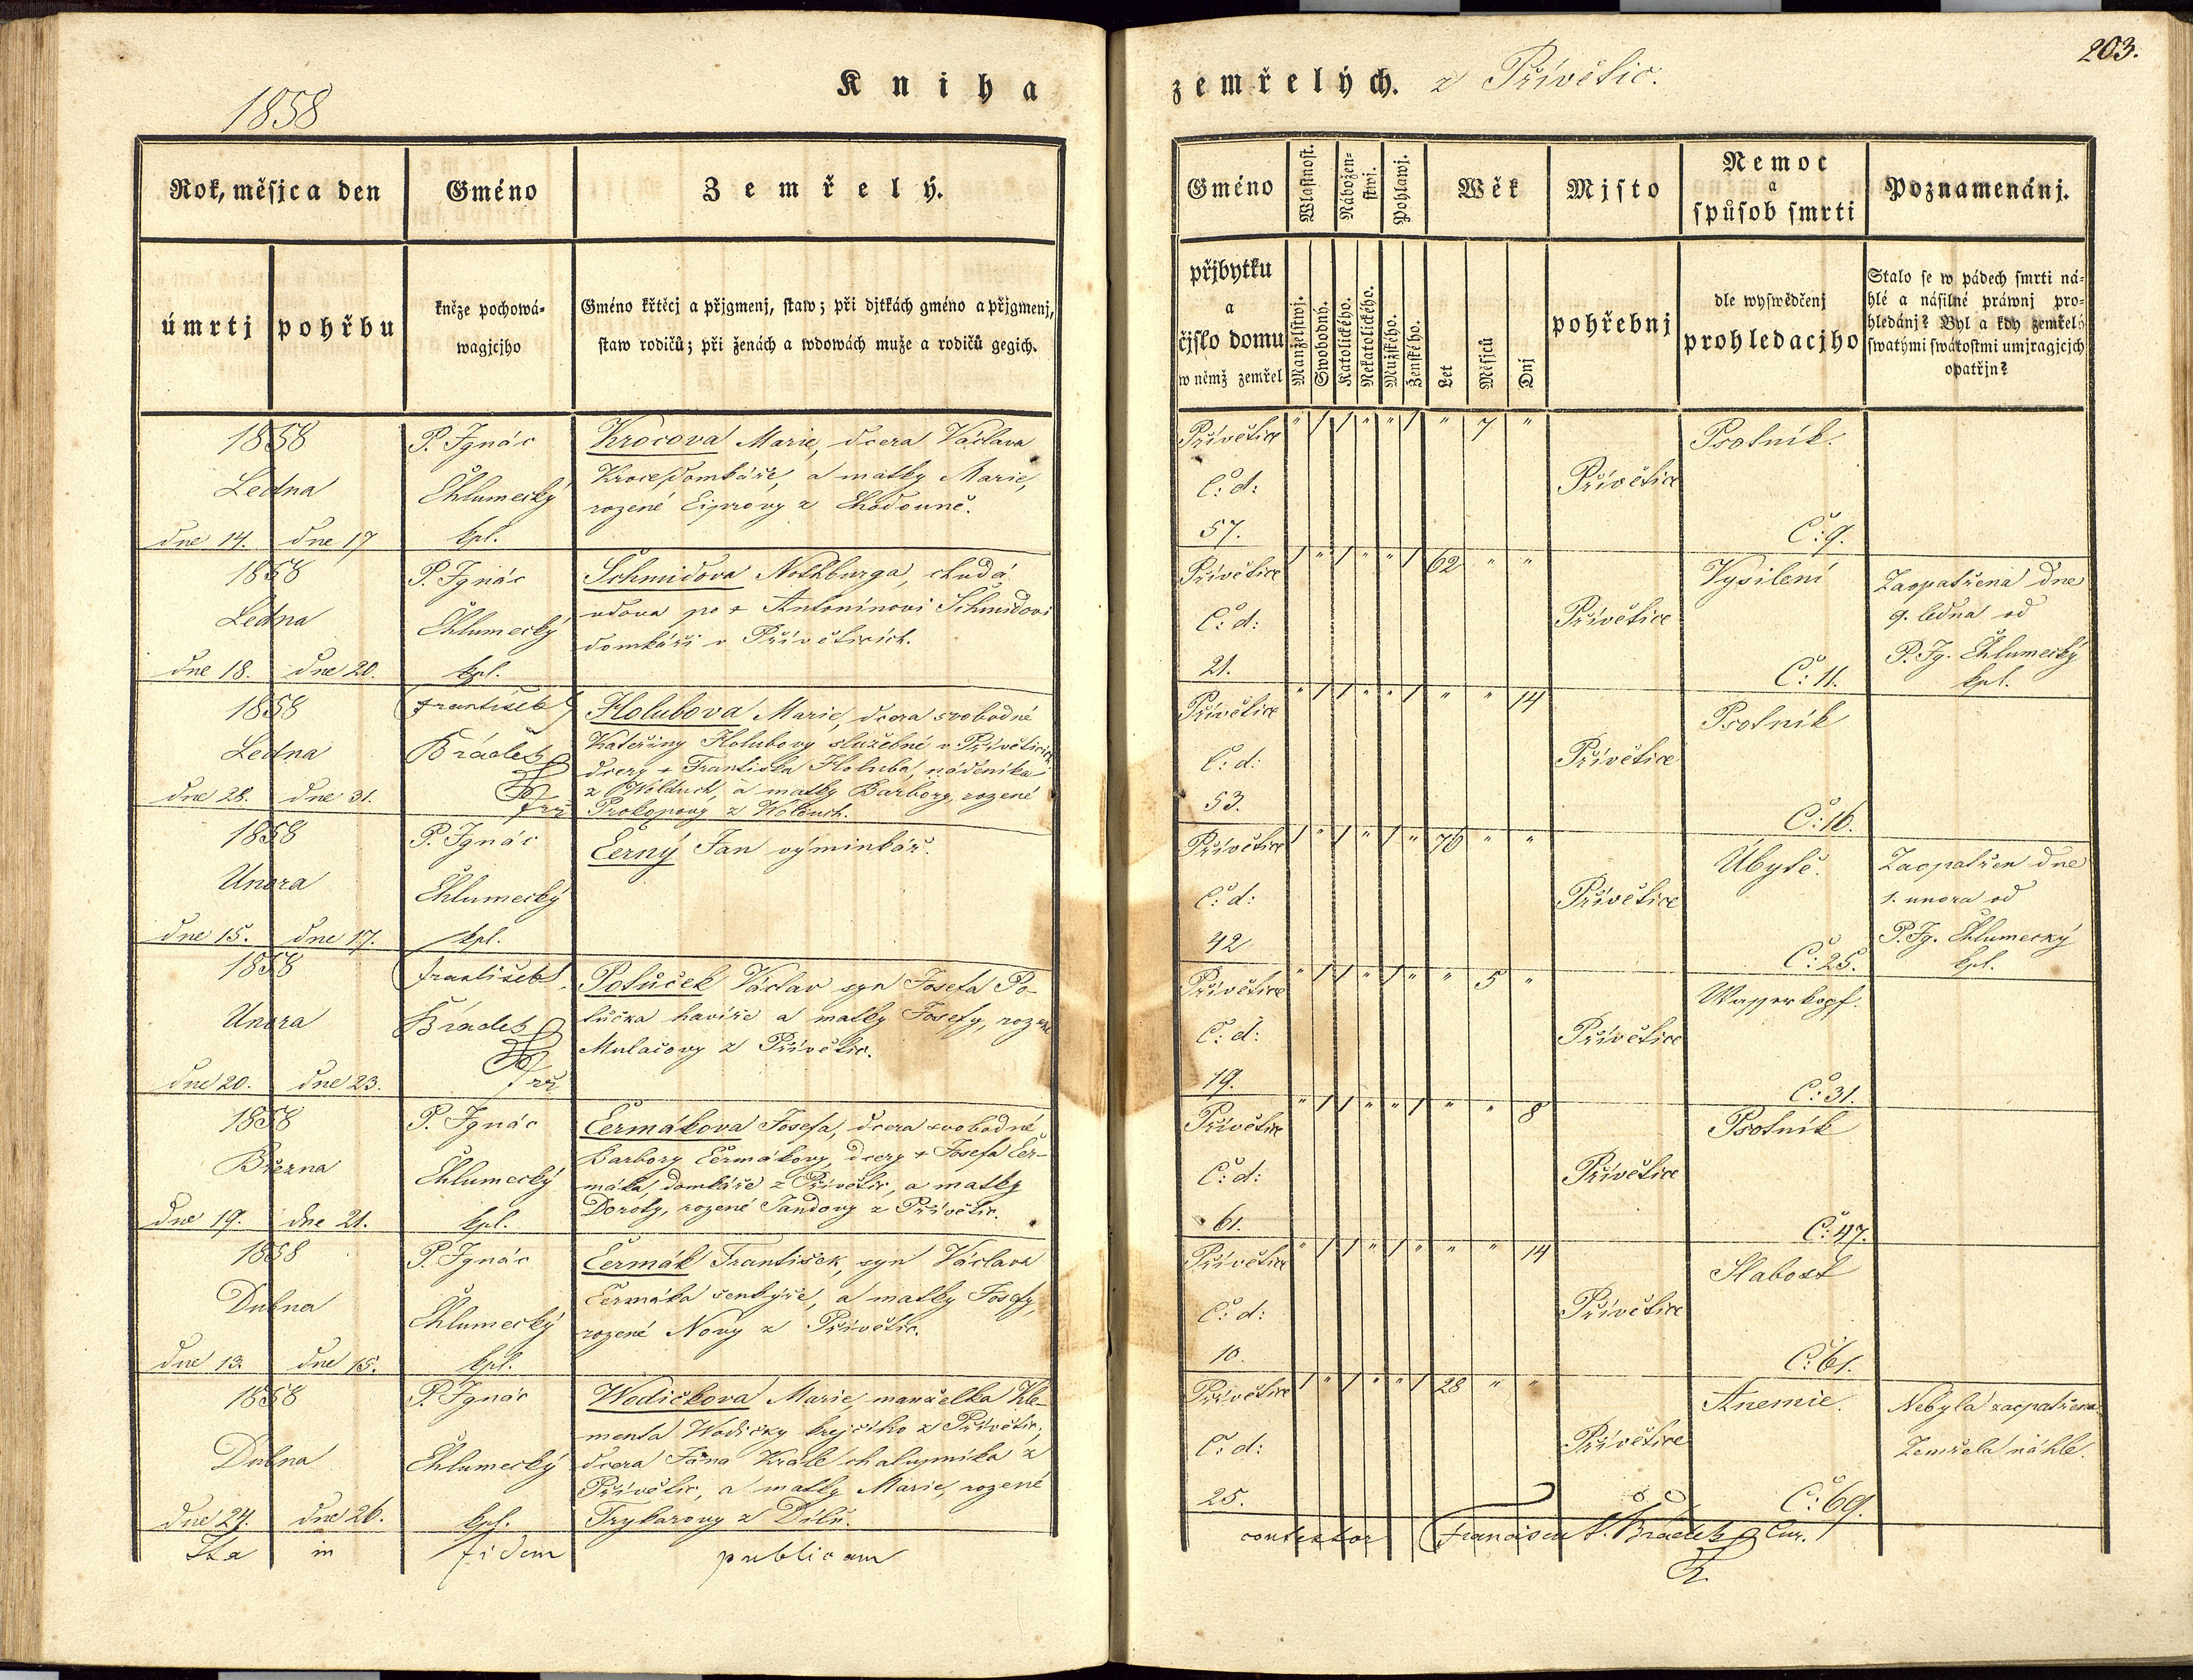 203.
Kniha zemřelých. z Přívětic.
1858
Rok, měsjc a den
Gméno
Zemřelý.
Gméno
Wlastnost.
Nábožen-
stwj.
Pohlawj.
Wěk
Mjsto
Nemoc
a
spůsob smrti
Poznamenánj.
úmrtj
pohřbu
kněze pochowá-
wagjcjho
Gméno křtěcj a přjgmenj, staw; při djtkách gméno a přjgmenj,
staw rodičů; při ženách a wdowách muže a rodičů gegich.
přjbytku
a
čjslo domu
w němž zemřel
Manželstwj.
Swobodný.
Katolického.
Nekatolického.
Mužského.
Ženského.
Let
Měsjců
Dnj
pohřebnj
dle wyswědčenj
prohledacjho
Stalo se w pádech smrti ná-
hlé a násilné práwnj pro-
hledánj? Byl a kdy zemřelý
swatými swátostmi umjragjcjch
opatřjn?
1858
Ledna
dne 14. dne 17
P. Ignác
Chlumecký
kpl.
Krocova Marie, dcera Václava
Kroce, domkáře, a matky Marie,
rozené Ciprovy z Chodouně.
Přívětice
Č: d:
57.
" / / " " / " 7 "
Přívětice
Psotník.
Č: 9.
1858
Ledna
dne 18. dne 20.
P. Ignác
Chlumecký
kpl.
Schmidova Nothburga, chudá
vdova po + Antonínovi Schmidovi
domkáři v Přívěticích.
Přívětice
Č: d:
21.
/ " / " " / 62 " "
Přívětice
Vysílení
Č: 11.
Zaopatřena dne
9. ledna od
P. Ig. Chlumecký
kpl.
1858
Ledna
dne 28. dne 31.
František
Brádek
Holubova Marie, dcera svobodné
Kateřiny Holubovy služebné v Přívěticích
dcery + Františka Holuba, nádeníka
z Wolduch, a matky Barbory, rozené
Prokopovy z Wolduch.
Přívětice
Č: d:
53.
" / / " " / " " 14
Přívětice
Psotník
Č: 16.
1858
Unora
dne 15. dne 17.
P. Ignác
Chlumecký
kpl.
Černý Jan výminkář.
Přívětice
Č: d:
42
/ " / " / " 76 " "
Přívětice
Úbytě.
Č: 25.
Zaopatřen dne
1. unora od
P. Ig. Chlumecký
kpl.
1858
Unora
dne 20. dne 23.
František
Brádek
Potůček Václav syn Josefa Po-
tůčka havíře a matky Josefy, rozené
Mulačovy z Přívětic.
Přívětice
Č: d:
19.
" / / " / " " 5 "
Přívětice
Wasserkopf.
Č: 31.
1858
Března
dne 19. dne 21.
P. Ignác
Chlumecký
kpl.
Čermákova Josefa, dcera svobodné
Barbory Čermákovy, dcery + Josefa Čer-
máka, domkáře z Přívětic, a matky
Doroty, rozené Jandovy z Přívětic.
Přívětice
Č: d:
61.
" / / " " / " " 8
Přívětice
Psotník
Č: 47.
1858
Dubna
dne 13. dne 15.
P. Ignác
Chlumecký
kpl.
Čermák František, syn Václava
Čermáka šenkýře, a matky Josefy,
rozené Novy z Přívětic.
Přívětice
Č: d:
10.
" / / " / " " " 14
Přívětice
Slabost
Č: 61.
1858
Dubna
dne 24. dne 26.
P. Ignác
Chlumecký
kpl.
Wodičkova Marie, manželka Kle-
menta Wodičky krejčího z Přívětic,
dcera Jána Krále chalupníka z
Přívětic, a matky Marie, rozené
Frykarovy z Dílů.
Přívětice
Č: d:
25.
/ " / " " / 28 " "
Přívětice
Anemie.
Č: 69.
Nebyla zaopatřena
Zemřela náhle.
Ita in fidem publicam contestor Franciscus S. Brádek Cur.